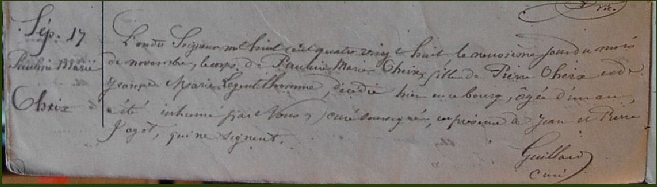 Sép: 17
Pauline Marie
Theix
L'an du Seigneur mil huit cent quatre vingt huit le neuvième jour du mois
de novembre, le corps de Pauline Marie Theix, fille de Pierre Theix et de
Jeanne Marie Lgentilhomme, décédée hier en ce bourg, âgée d'un an,
a été inhumé par Nous, curé soussigné, en présence de Jean et Pierre
Jagot, qui ne signent.
Guillard
Curé